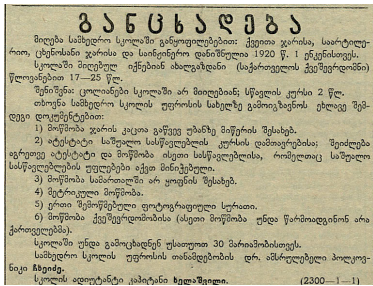 განცხადება
მიღება სამხედრო სკოლაში განყოფილებებით: ქვეითა ჯარისა, საარტილე-
რიო, ცხენოსანი ჯარისა და საინჟინერო დანიშნულია 1920 წ. 1 ენკენისთვეს.
სკოლაში მიღებულ იქნებიან ახალგაზდანი (საქართველოს ქვეშევრდომნი)
წლოვანებით 17—25 წლ.
შენიშვნა: ცოლიანები სკოლაში არ მიიღებიან; სწავლის კურსი 2 წლ.
თხოვნა სამხედრო სკოლის უფროსის სახელზე გამოიგზავნოს ეხლავე შემ-
დეგი დოკუმენტებით:
1) მოწმობა ჯარის კაცთა გაწვევ უბანზე მიწერის შესახებ.
2) ატესტატი საშუალო სასწავლებლის კურსის დამთავრებისა; შეიძლება
აგრეთვე ატესტატი და მოწმობა ისეთი სასწავლებლისა, რომელთაც საშუალო
სასწავლებლების უფლებები აქვთ მინიჭებული.
3) მოწმობა სამართალში არ ყოფნის შესახებ.
4) მეტრიკული მოწმობა.
5) ერთი შემოწმებული ფოტოგრაფიული სურათი.
6) მოწმობა ქვეშევრდომობისა (ასეთი მოწმობა უნდა წარმოადგინონ არა
ქართველებმა).
სკოლაში უნდა გამოცხადნენ უსათუოთ 30 მარიამობისთვეს.
სამხედრო სკოლის უფროსის თანამდებობის დრ. ამსრულებელი პოლკოვ-
ნიკი ჩხეიძე.
სკოლის ადიუტანტი კაპიტანი ხელაშვილი. (2300—1—1)